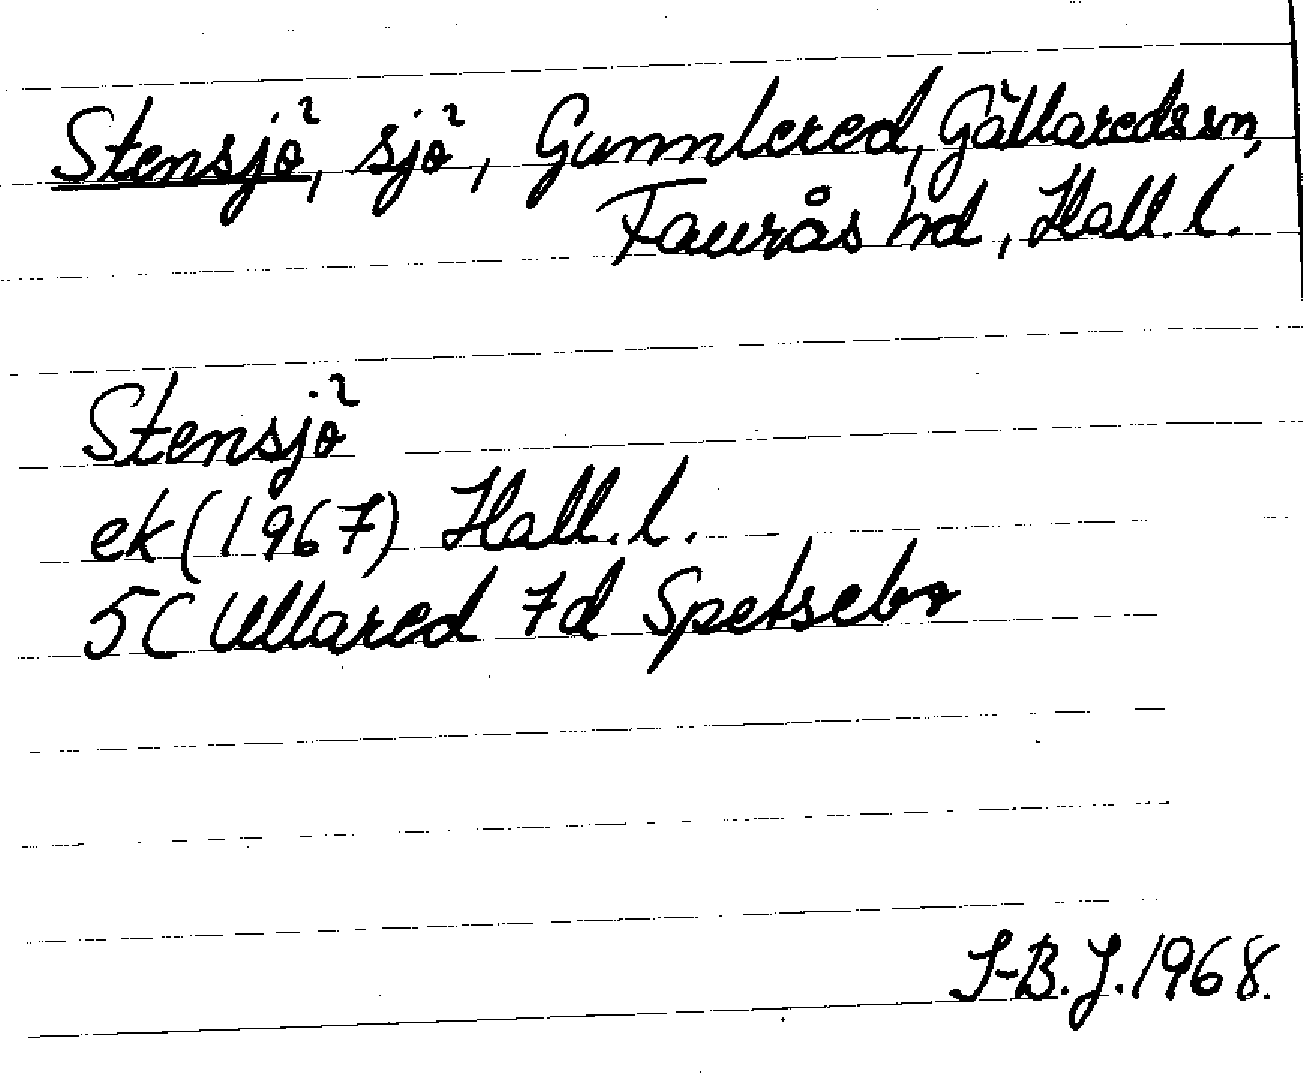 Stensjö, sjö, Gunnlered, Gällareds sn,
Faurås hd, Hall. l.
Stensjö
ek (1967) Hall. l.
5C Ullared 7d Spetsebo
I-B. J. 1968.